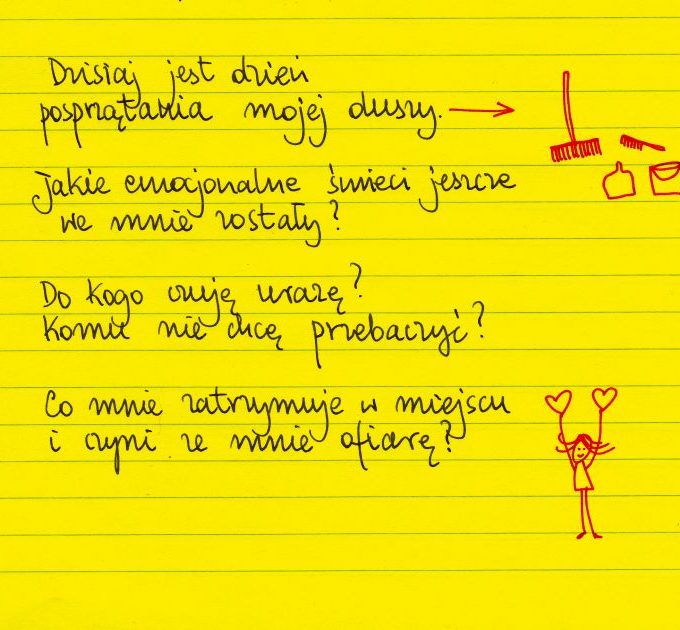 Dzisiaj jest dzień
posprzątania mojej duszy.
Jakie emocjonalne śmieci jeszcze
we mnie zostały?
Do kogo czuję urazę?
Komu nie chcę przebaczyć?
Co mnie zatrzymuje w miejscu
i czyni ze mnie ofiarę?